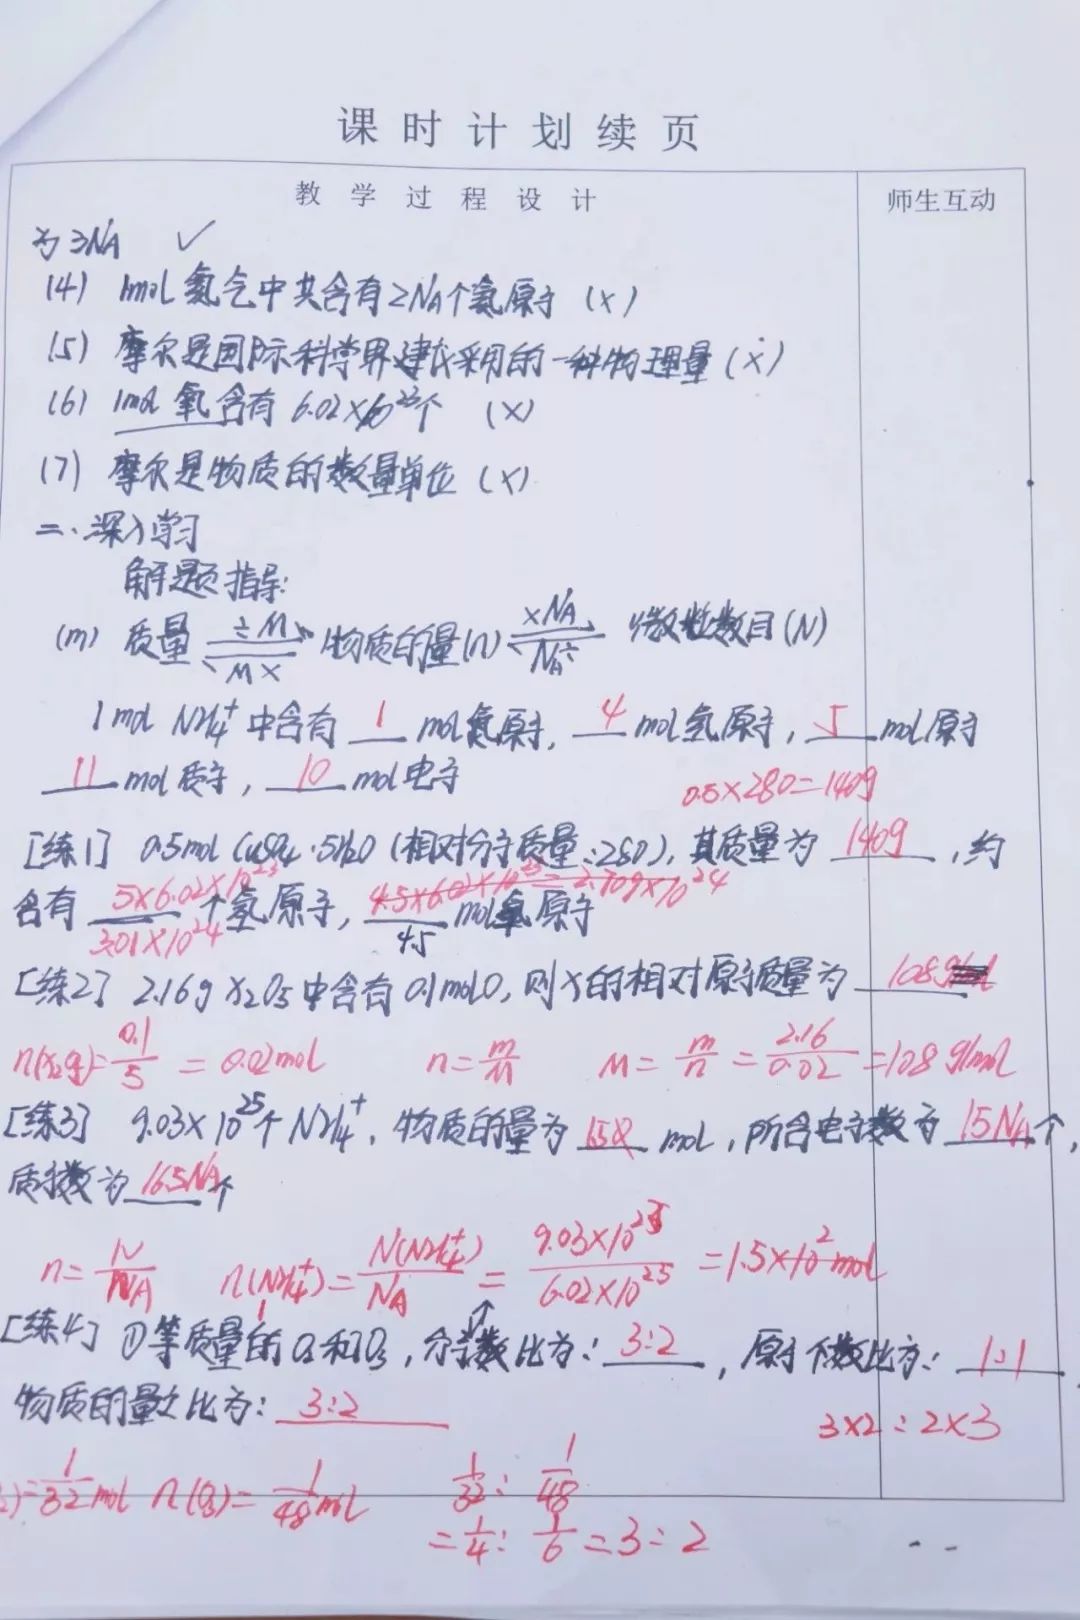 课时计划续页
教学过程设计 师生互动
为3NA ✓
(4) 1mol氦气中共含有2NA个氦原子 (×)
(5) 摩尔是国际科学界建议采用的一种物理量 (×)
(6) 1mol氧含有6.02×10²³个 (×)
(7) 摩尔是物质的数量单位 (×)
二.深入学习
解题指导:
(m) 质量 ÷M M× 物质的量(n) ×NA NA÷ 微粒数目(N)
1mol NH₄⁺中含有 1 mol氮原子, 4 mol氢原子, 5 mol原子
11 mol质子, 10 mol电子
0.5×280=140g
[练1] 0.5mol CuSO₄·5H₂O (相对分子质量:280), 其质量为 140g , 约
含有 5×6.02×10²³ 个氢原子, 4.5×6.02×10²³=2.709×10²⁴ mol氧原子
3.01×10²⁴ 4.5
[练2] 2.16g X₂O₅中含有0.1molO, 则X的相对原子质量为 108
=0.1/5 = 0.02mol n=m/M M=m/n=2.16/0.02=108 g/mol
[练3] 9.03×10²⁵个NH₄⁺, 物质的量为 mol, 所含电子数为 15NA个,
质子数为 16.5NA个
n=N/NA n(NH₄⁺)=N(NH₄⁺)/NA = 9.03×10²⁵/6.02×10²³ =1.5×10²mol
[练4] ①等质量的O₂和O₃, 分子数比为: 3:2 , 原子个数比为: 1:1
物质的量之比为: 3:2
3×2:2×3
)=1/32mol n(O₃)=1/48mol 1/32:1/48
=1/4:1/6=3:2